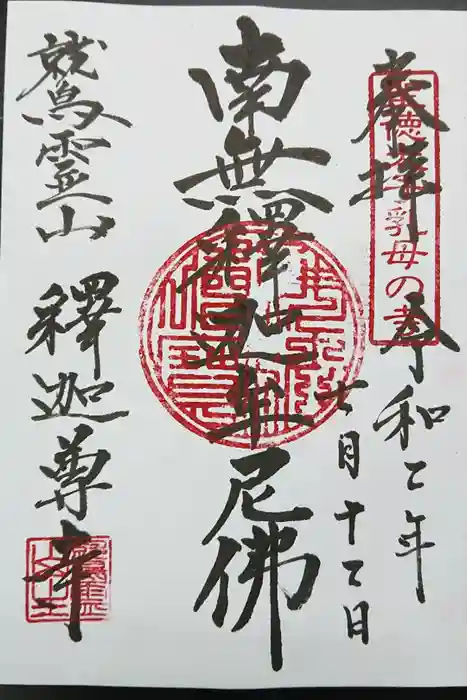 奉拝 令和二年
聖徳太子乳母の寺
七月十二日
南無釋迦牟尼佛
鷲霊山 釋迦尊寺